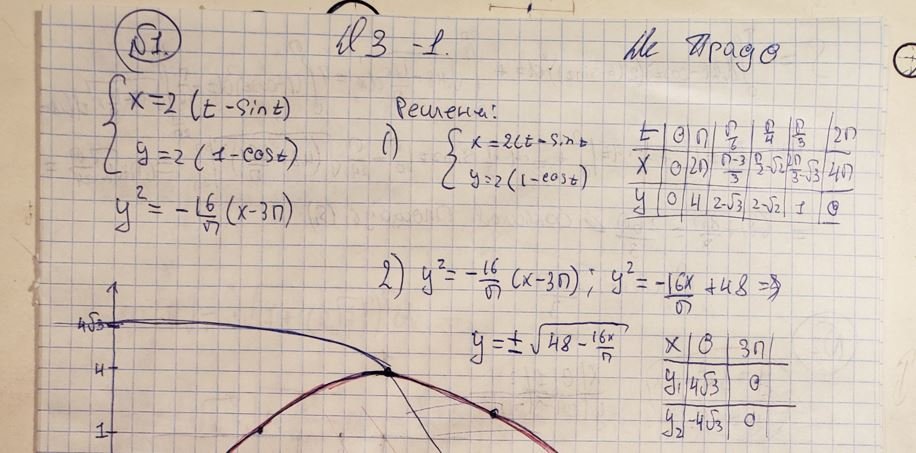 №1. ДЗ -1. Де Прадо
x=2(t-sint)
y=2(1-cost)
y²=-16/π(x-3π)
Решение:
1) x=2(t-sint
y=2(1-cost)
t 0 π π/6 π/4 π/3 2π
x 0 2π π-3/3 π/2-√2 2π/3-√3 4π
y 0 4 2-√3 2-√2 1 0
2) y²=-16/π(x-3π); y²=-16x/π+48 =>
y=±√48-16x/π
x 0 3π
y₁ 4√3 0
y₂ -4√3 0
4√3
4
1